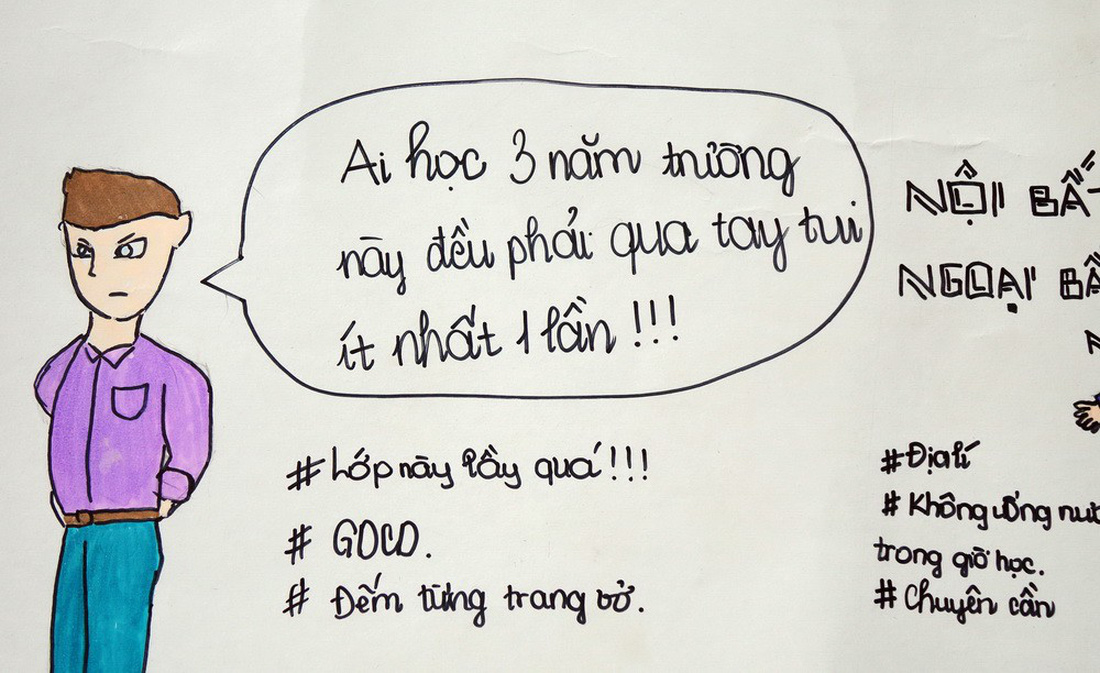 Ai học 3 năm trường
này đều phải qua tay tui
ít nhất 1 lần !!!
#Lớp này lầy quá!!!
# GDCD.
# Đếm từng trang vở.
NỘI
NGOẠI
#Địa lí
# Không uống
trong giờ học.
# Chuyên cần